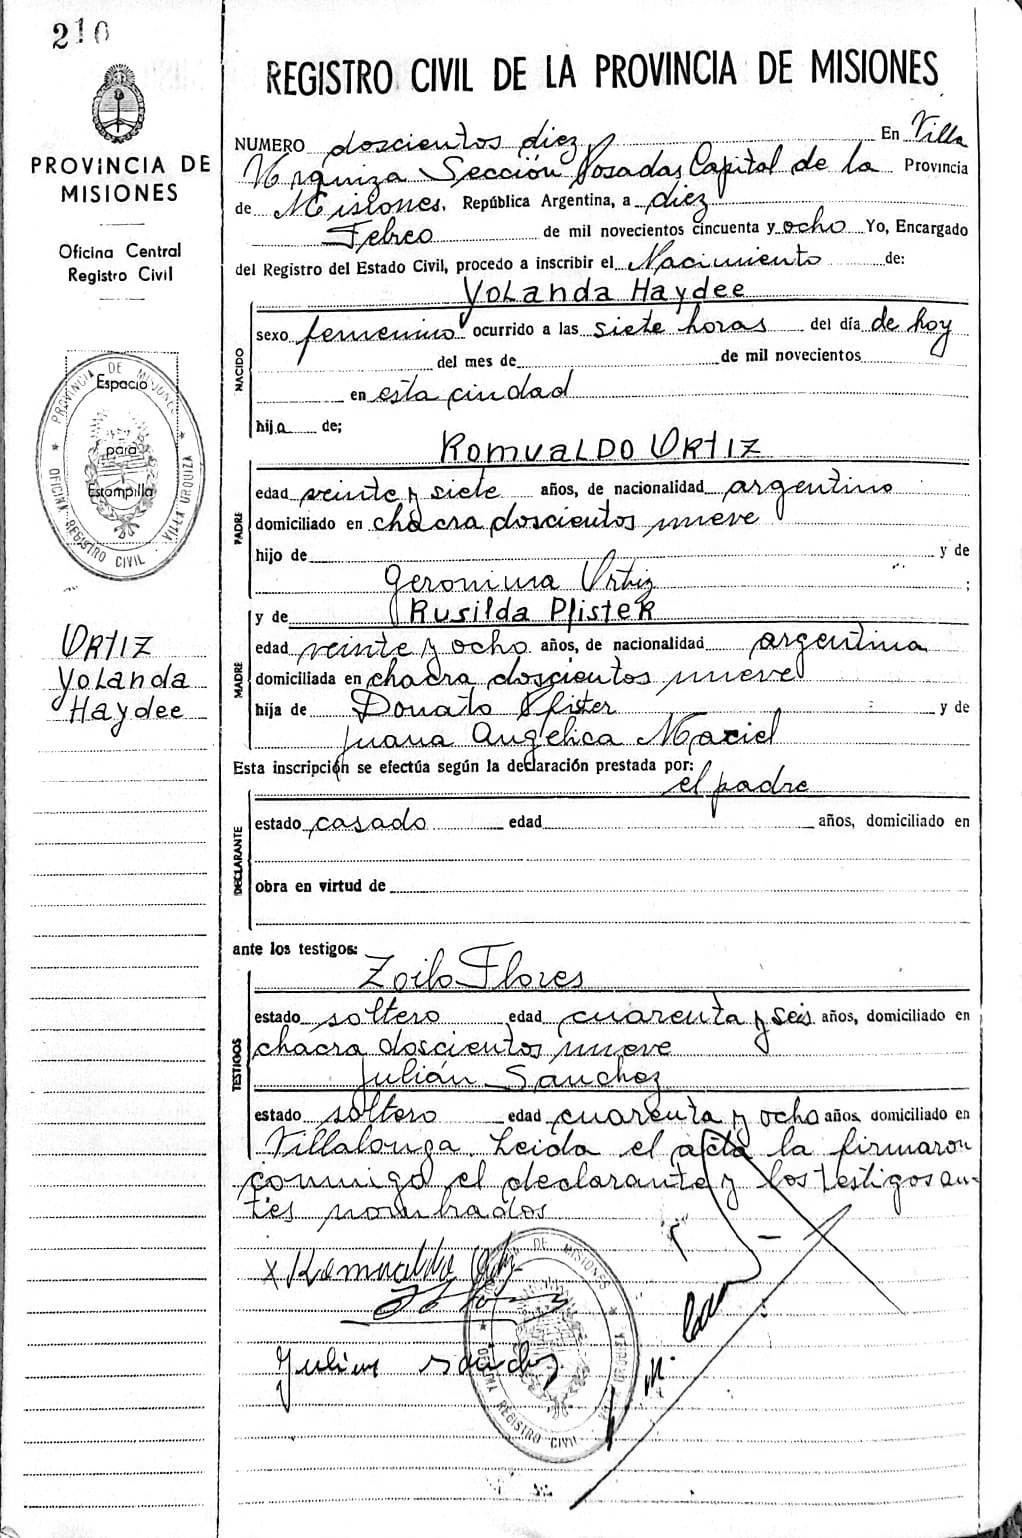 210
PROVINCIA DE
MISIONES
Oficina Central
Registro Civil
PROVINCIA DE MISIONES
Espacio
para
Estampilla
OFICINA REGISTRO CIVIL · VILLA URQUIZA
ORTIZ
Yolanda
Haydee
REGISTRO CIVIL DE LA PROVINCIA DE MISIONES
NUMERO doscientos diez En Villa
Urquiza Sección Posadas Capital de la Provincia
de Misiones, República Argentina, a diez
Febreo de mil novecientos cincuenta y ocho Yo, Encargado
del Registro del Estado Civil, procedo a inscribir el Nacimiento de:
Yolanda Haydee
NACIDO
sexo femenino ocurrido a las siete horas del día de hoy
del mes de de mil novecientos
en esta ciudad
hija de;
Romualdo Ortiz
PADRE
edad veinte y siete años, de nacionalidad argentino
domiciliado en chacra doscientos nueve
hijo de y de
Geronima Ortiz ;
y de Rusilda Pfister
MADRE
edad veinte y ocho años, de nacionalidad argentina
domiciliada en chacra doscientos nueve
hija de Donato Pfister y de
Juana Angélica Maciel
Esta inscripción se efectúa según la declaración prestada por:
el padre
DECLARANTE
estado casado edad años, domiciliado en
obra en virtud de
ante los testigos:
Zoilo Flores
TESTIGOS
estado soltero edad cuarenta y seis años, domiciliado en
chacra doscientos nueve
Julián Sanchez
estado soltero edad cuarenta y ocho años domiciliado en
Villalonga. Leida el acta la firmaron
conmigo el declarante y los testigos an-
tes nombrados
x Romualdo Ortiz
Julian Sanchez
DE MISIONES
OFICINA REGISTRO CIVIL
URQUIZA